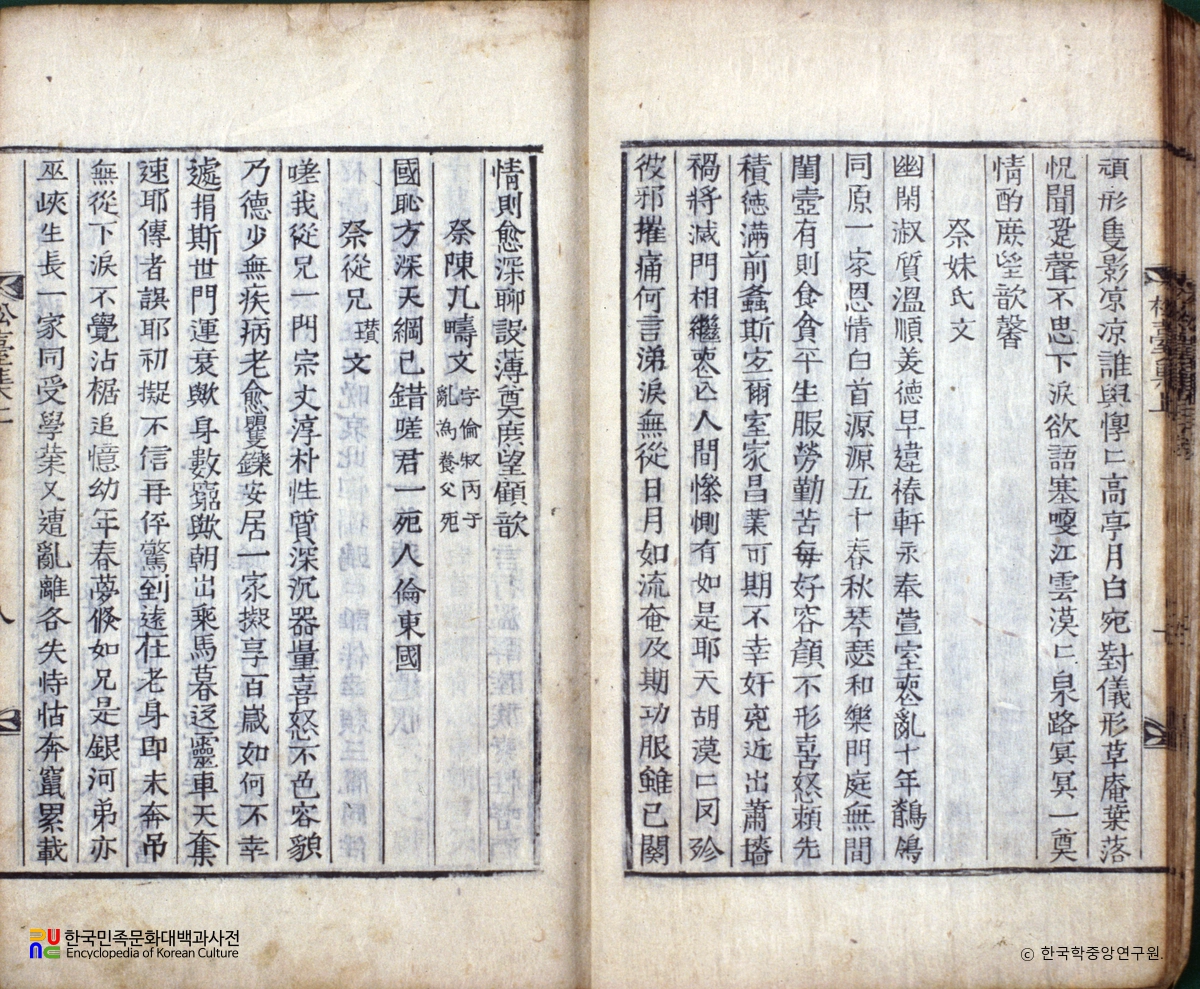 頑形隻影凉凉誰與惸〻高亭月白宛對儀形草庵葉落
怳聞跫聲不思下淚欲語塞嗄江雲漠〻泉路冥冥一奠
情酌庶望歆馨
祭妹氏文
幽閑淑質溫順美德早違椿軒永奉萱室喪亂十年鶺鴒
同原一家恩情白首源源五十春秋琴瑟和樂門庭無間
閨壼有則食貧平生服勞勤苦每好容顏不形喜怒頼先
積德滿前螽斯宜爾室家昌業可期不幸奸兇近出蕭墻
禍將滅門相繼喪亡人間慘惻有如是耶天胡漠〻罔殄
彼邪摧痛何言涕淚無從日月如流奄及期功服雖已闋
情則愈深聊設薄奠庶望顧歆
祭陳九疇文 字倫叙丙子亂為養父死
國恥方深天綱已錯嗟君一死人倫東國
祭從兄瓚文
嗟我從兄一門宗丈淳朴性質深沉器量喜怒不色容貌
乃德少無疾病老愈矍鑠安居一家擬享百歲如何不幸
遽捐斯世門運衰歟身數窮歟朝出乘馬暮返靈車天奪
速耶傳者誤耶初擬不信再伻驚到遠在老身即未奔吊
無從下淚不覺沾裾追憶幼年春夢倐如兄是銀河弟亦
巫峽生長一家同受學業又遭亂離各失恃怙奔竄累載
한국민족문화대백과사전
Encyclopedia of Korean Culture
ⓒ 한국학중앙연구원.